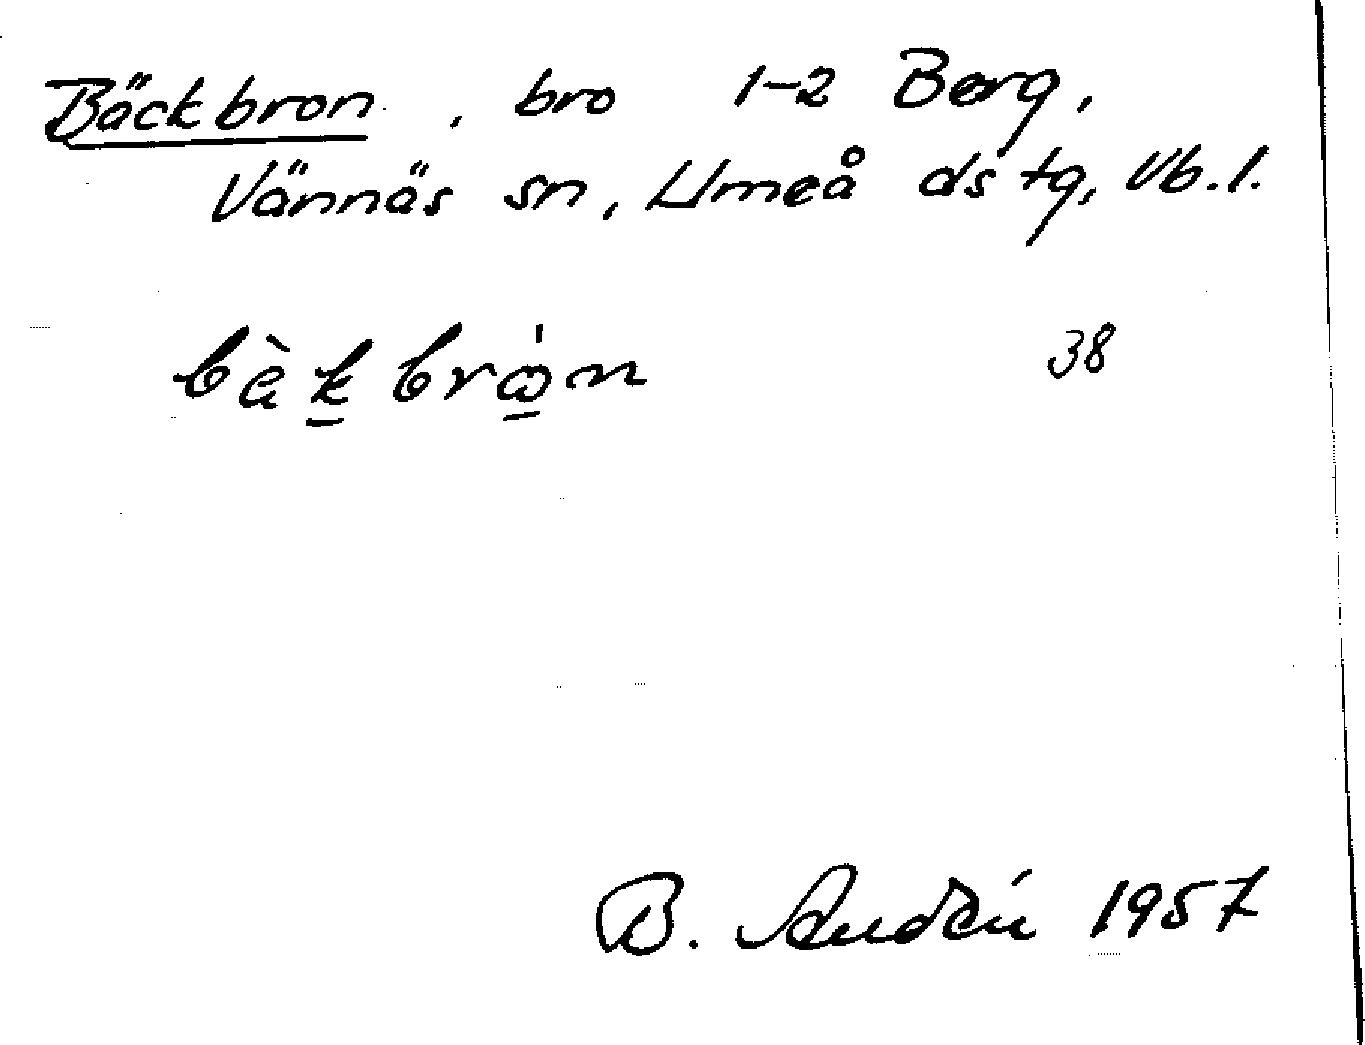 Bäckbron, bro 1-2 Berg,
Vännäs sn, Umeå ds tg, Vb.l.
bὲk̲brὼ̲n 38
B. 1957